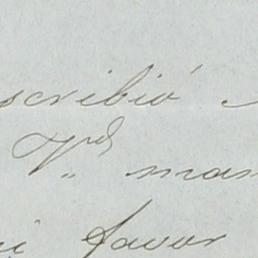 scribió
Vd man
favor